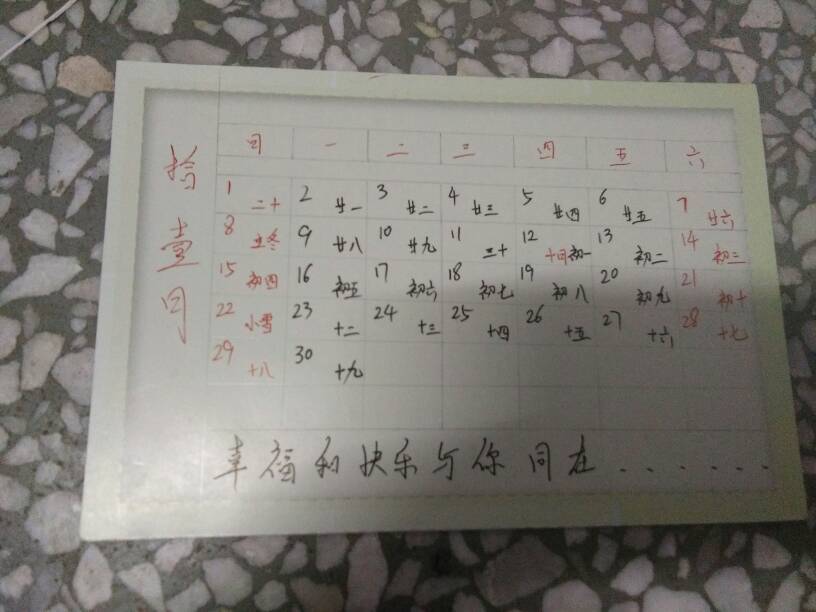 拾壹月
日 一 二 三 四 五 六
1 二十 2 廿一 3 廿二 4 廿三 5 廿四 6 廿五 7 廿六
8 立冬 9 廿八 10 廿九 11 三十 12 十月初一 13 初二 14 初三
15 初四 16 初五 17 初六 18 初七 19 初八 20 初九 21 初十
22 小雪 23 十二 24 十三 25 十四 26 十五 27 十六 28 十七
29 十八 30 十九
幸福和快乐与你同在......